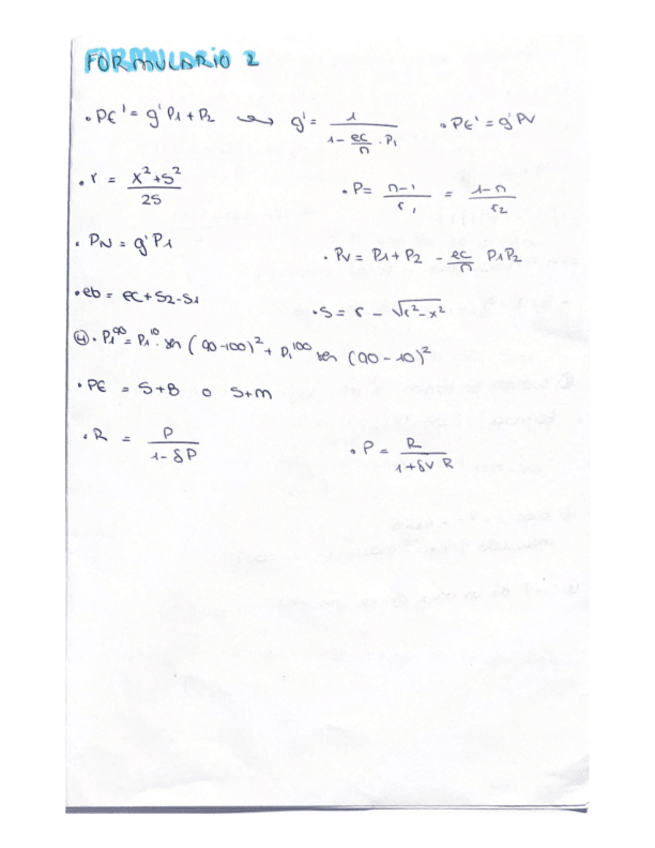 FORMULARIO 2
• PE' = g' P1 + P2 ⟿ g' = 1 / (1 - ec/n · P1) • PE' = g' PV
• r = (x² + s²) / 2s • P = (n-1) / r1 = (1-n) / r2
• PN = g' P1 • PV = P1 + P2 - ec/n P1P2
• eb = ec + S2 - S1 • S = r - √(r² - x²)
④ • P1⁹⁰ = P1¹⁰ · sen (90-100)² + P1¹⁰⁰ sen (90-10)²
• PE = S+B o S+M
• R = P / (1 - δP) • P = R / (1 + δV R)